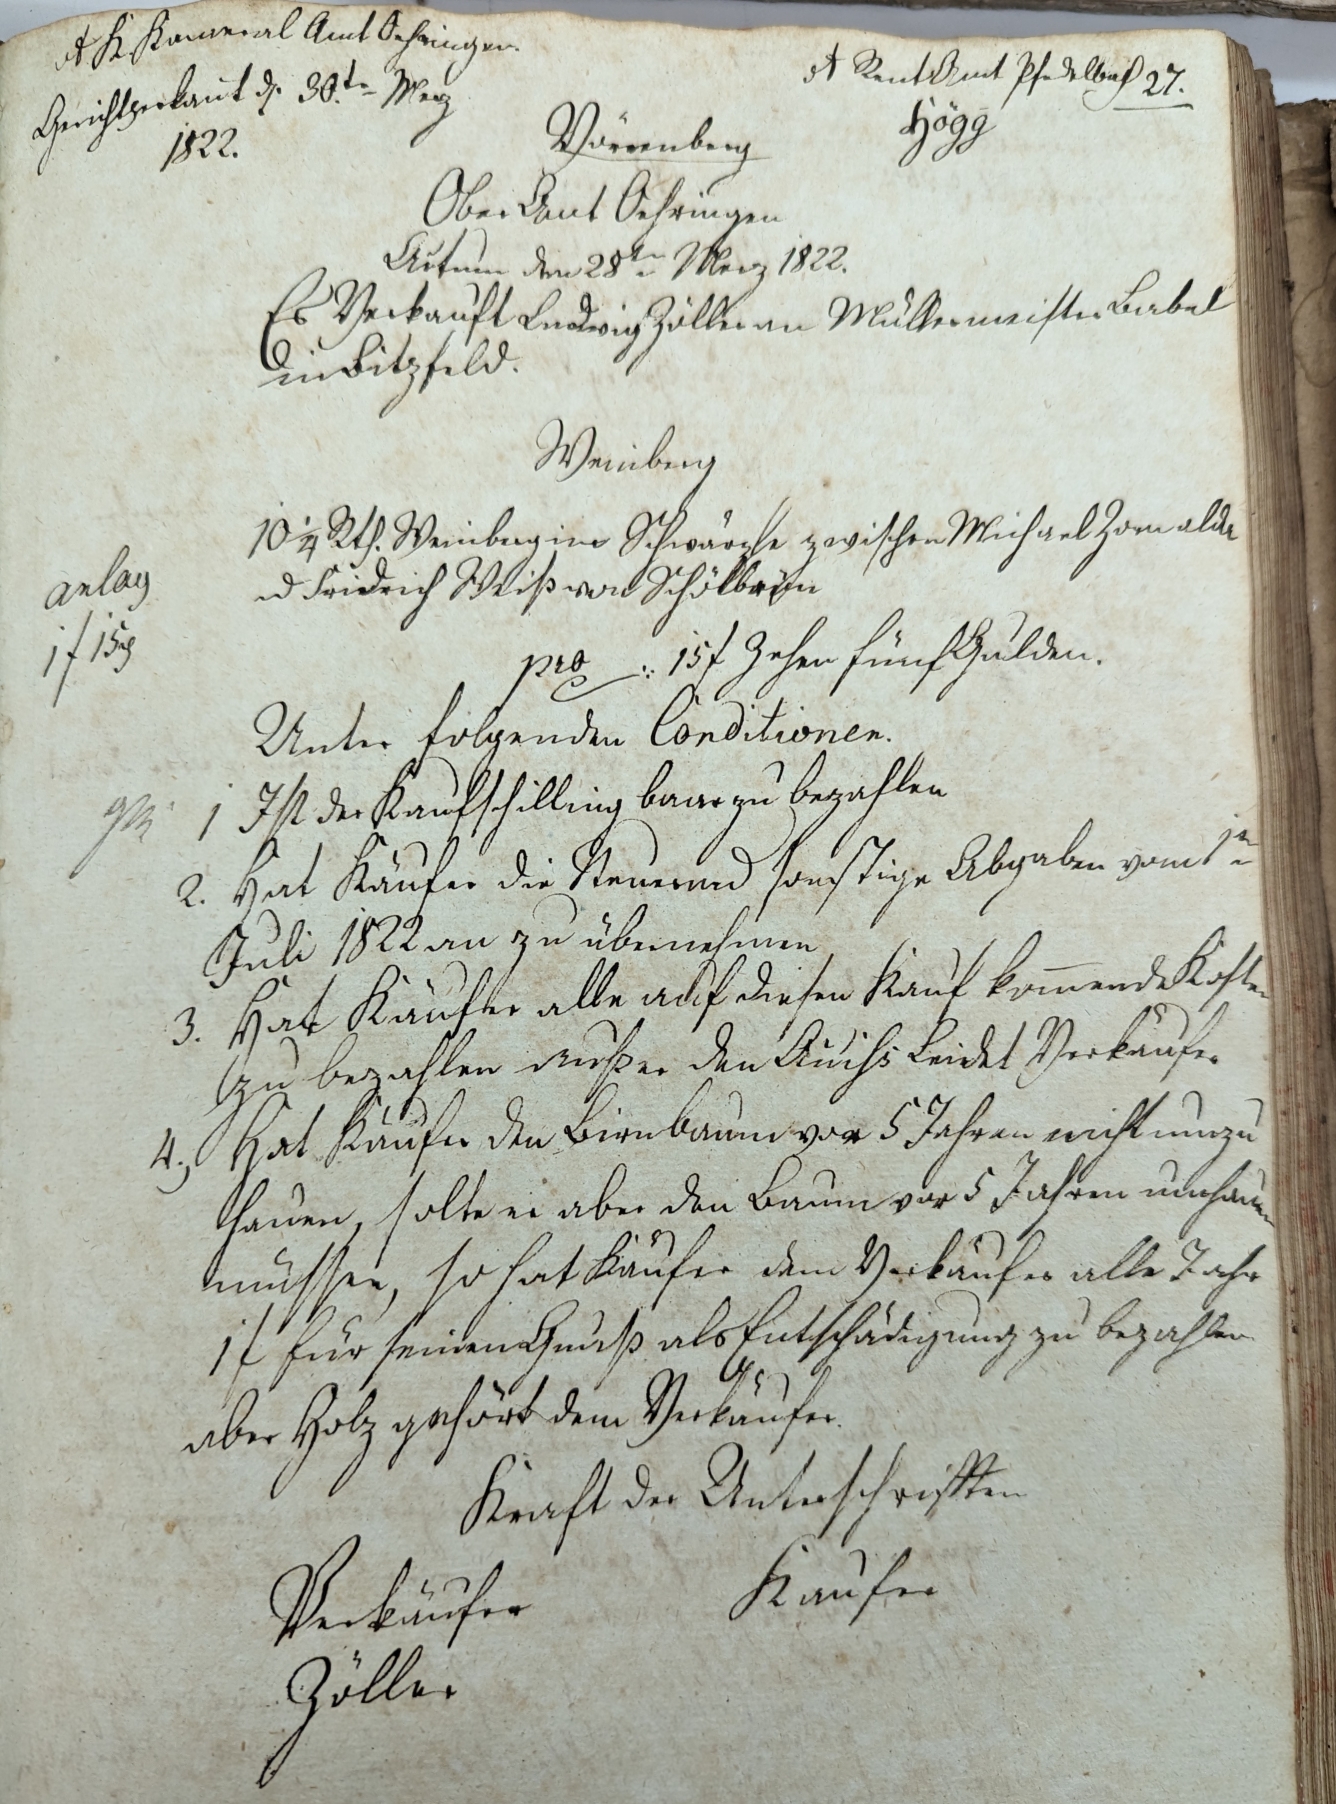 K. Kameral Amt Oehringen
Gerichtlich erkant d. 30.te Merz
1822.
Rent Amt Pfedelbach 27.
Högg
Vörrenberg
Ober Amt Oehringen
Actum den 28ten Merz 1822.
Es Verkauft Ludwig Zöller an Müllermeister Babel
in Bitzfeld.
Weinberg
10 1/4 Rth. Weinberg im zwischen Michael Zorn alda
u Fridrich Weiß von
anlag
1 f 15
pro .:. 15 f Zehen fünf Gulden.
Unter folgenden Conditionen.
1 Ist der Kaufschilling baar zu bezahlen
2. Hat Käufer die Steuer und sonstige Abgaben vom 1n
Juli 1822 an zu übernehmen
3. Hat Käufer alle auf diesen Kauf kommende Kosten
zu bezahlen außer den Accis Leidet Verkäufer
4. Hat Käufer den Birnbaum vor 5 Jahren nicht umzu
hauen, solte er aber den Baum vor 5 Jahren umhauen
müssen, so hat Käufer dem Verkäufer alle Jahr
1 f für seinen Gnuß als Entschädigung zu bezahlen
aber Holz gehört dem Verkäufer.
Kraft der Unterschrifften
Verkäufer Kaufer
Zöller